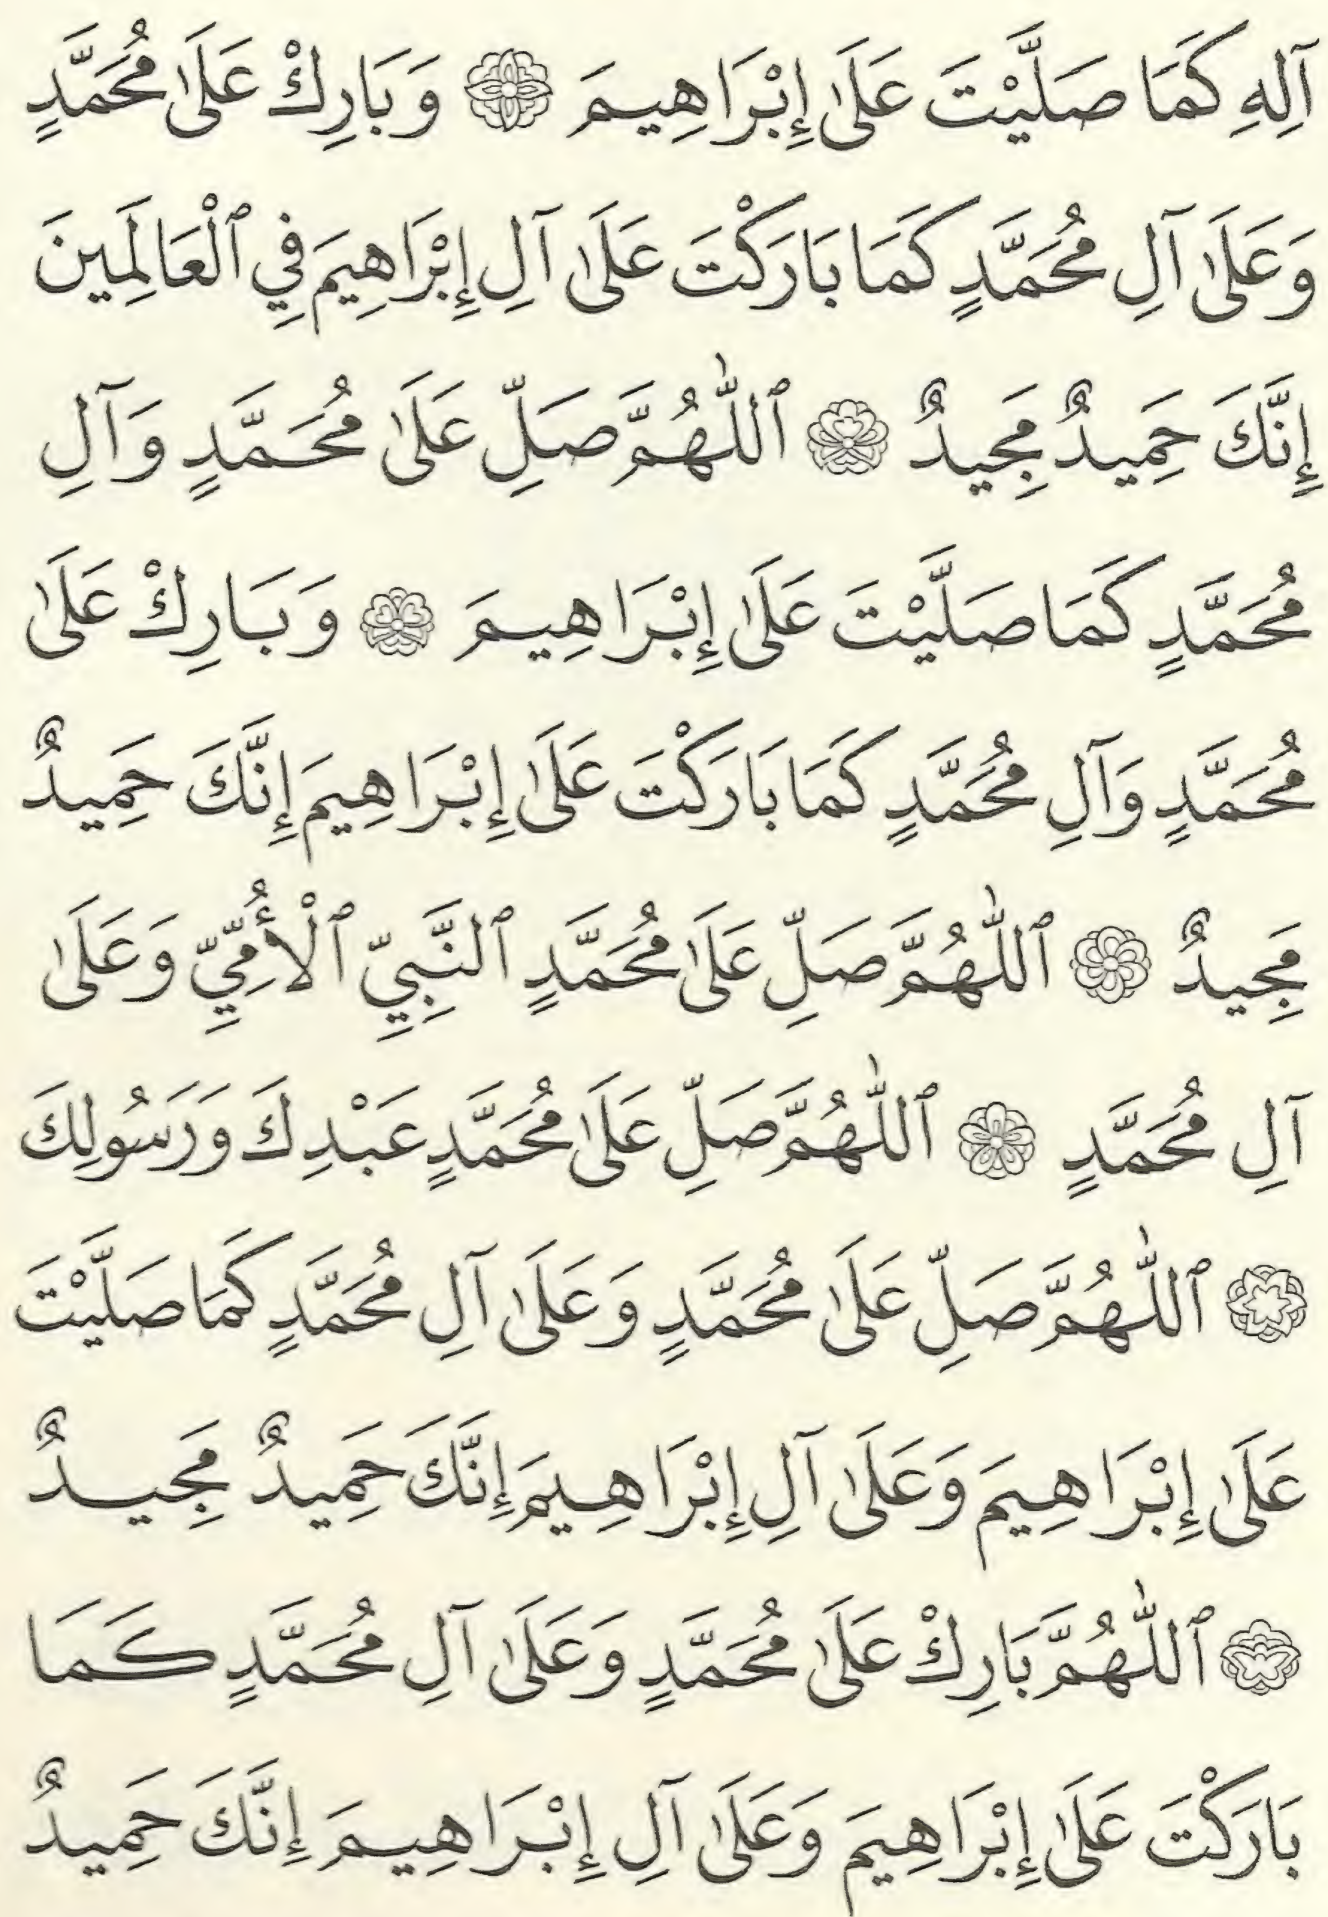 آلِهِ كَمَا صَلَّيْتَ عَلَىٰ إِبْرَاهِيمَ ۞ وَبَارِكْ عَلَىٰ مُحَمَّدٍ
وَعَلَىٰ آلِ مُحَمَّدٍ كَمَا بَارَكْتَ عَلَىٰ آلِ إِبْرَاهِيمَ فِي ٱلْعَالَمِينَ
إِنَّكَ حَمِيدٌ مَجِيدٌ ۞ ٱللّٰهُمَّ صَلِّ عَلَىٰ مُحَمَّدٍ وَآلِ
مُحَمَّدٍ كَمَا صَلَّيْتَ عَلَىٰ إِبْرَاهِيمَ ۞ وَبَارِكْ عَلَىٰ
مُحَمَّدٍ وَآلِ مُحَمَّدٍ كَمَا بَارَكْتَ عَلَىٰ إِبْرَاهِيمَ إِنَّكَ حَمِيدٌ
مَجِيدٌ ۞ ٱللّٰهُمَّ صَلِّ عَلَىٰ مُحَمَّدٍ ٱلنَّبِيِّ ٱلْأُمِّيِّ وَعَلَىٰ
آلِ مُحَمَّدٍ ۞ ٱللّٰهُمَّ صَلِّ عَلَىٰ مُحَمَّدٍ عَبْدِكَ وَرَسُولِكَ
۞ ٱللّٰهُمَّ صَلِّ عَلَىٰ مُحَمَّدٍ وَعَلَىٰ آلِ مُحَمَّدٍ كَمَا صَلَّيْتَ
عَلَىٰ إِبْرَاهِيمَ وَعَلَىٰ آلِ إِبْرَاهِيمَ إِنَّكَ حَمِيدٌ مَجِيدٌ
۞ ٱللّٰهُمَّ بَارِكْ عَلَىٰ مُحَمَّدٍ وَعَلَىٰ آلِ مُحَمَّدٍ كَمَا
بَارَكْتَ عَلَىٰ إِبْرَاهِيمَ وَعَلَىٰ آلِ إِبْرَاهِيمَ إِنَّكَ حَمِيدٌ